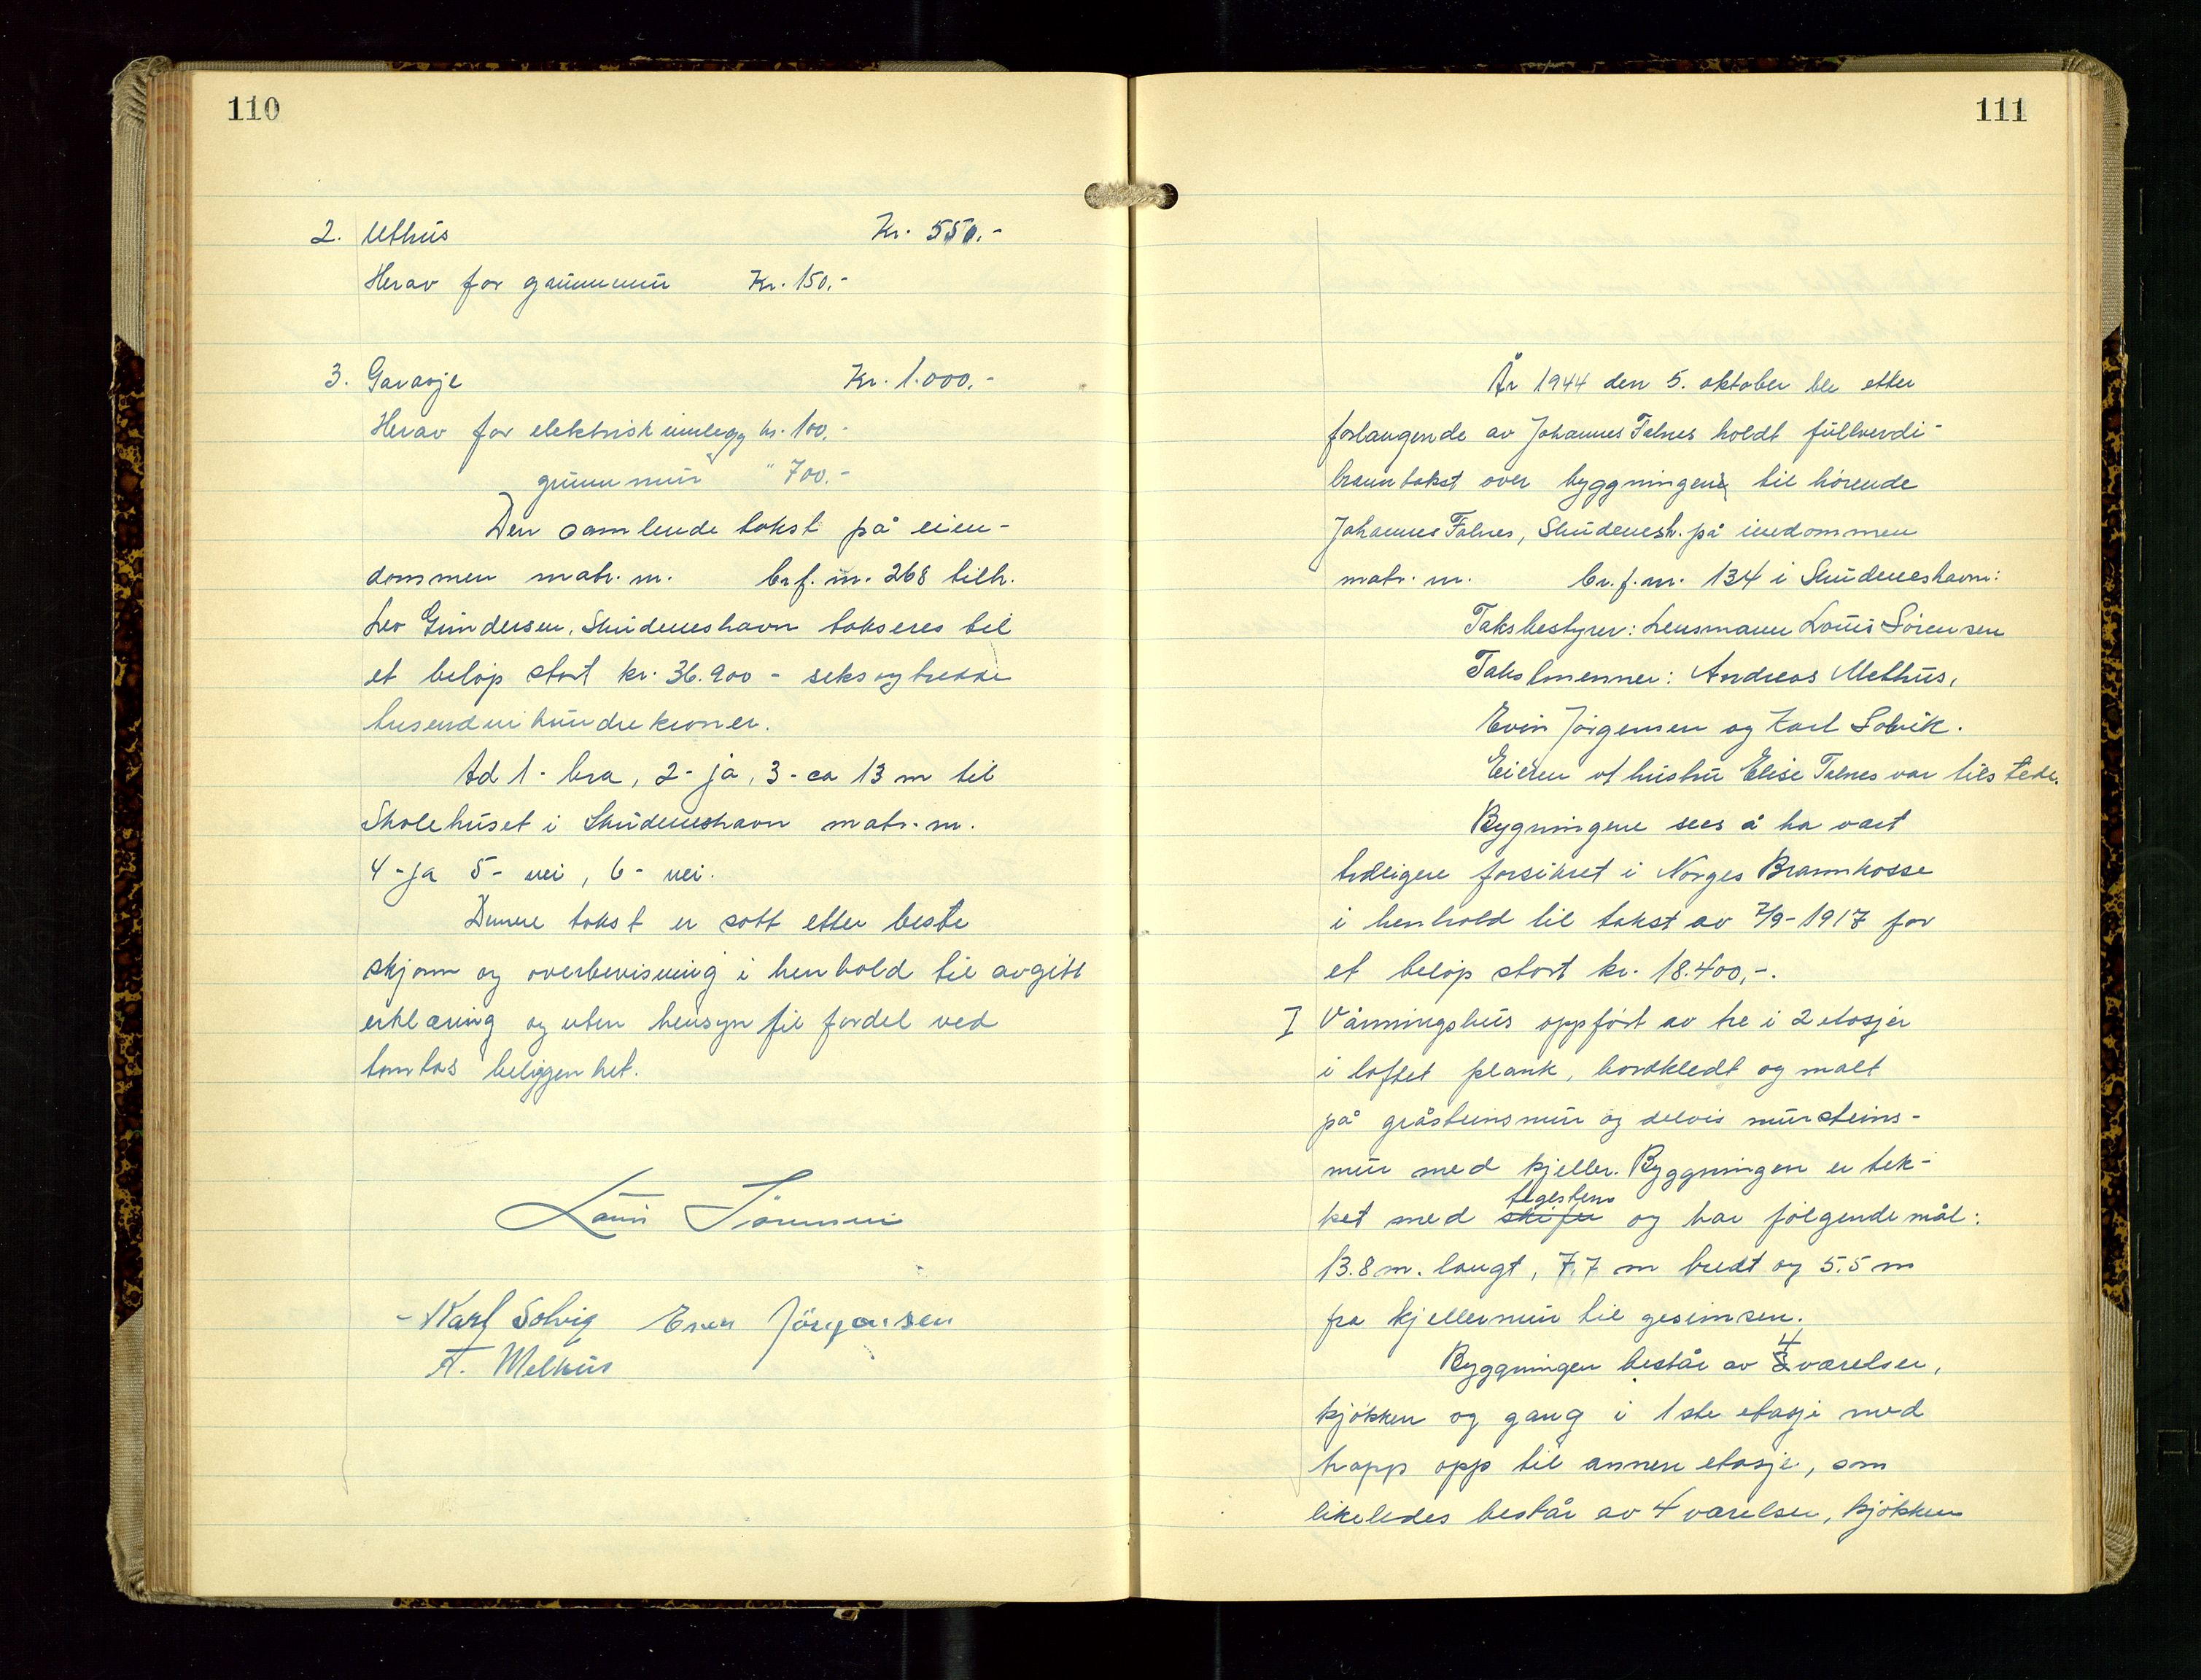 110
2. Uthus Kr. 550.-
Herav for grunnmur Kr. 150.-
3. Garasje Kr. 1.000.-
Herav for elektrisk innlegg kr. 100.-
grunnmur " 700.-
Den samlende takst på eien-
dommen matr. nr. br.f. nr. 268 tilh.
Leo Gundersen, Skudeneshavn takseres til
et beløp stort kr. 36.900 - seksogtredve
tusendnihundrekroner.
Ad 1- bra, 2- ja, 3- ca 13 m til
Skolehuset i Skudeneshavn matr. nr.
4- ja 5- nei, 6- nei.
Denne takst er satt etter beste
skjønn og overbevisning i henhold til avgitt
erklæring og uten hensyn til fordel ved
tomtas beliggenhet.
Louis Sörensen
- Karl Solvig Even Jörgensen
A. Melhus
111
År 1944 den 5. oktober ble etter
forlangende av Johannes Falnes holdt fullverdi-
branntakst over byggningene tilhørende
Johannes Falnes, Skudenesh. på iendommen
matr. nr. br.f.nr. 134 i Skudeneshavn:
Taksbestyrer: Lensmann Louis Sörensen
Takstmenner: Andreas Melhus,
Even Jørgensen og Karl Solvik.
Eieren v/ hustru Elise Falnes var tilstede.
Bygningene sees å ha vært
tidligere forsikret i Norges Brannkasse
i henhold til takst av 7/9-1917 for
et beløp stort kr. 18.400,-.
I Våningshus oppført av tre i 2 etasjer
i loftet plank, bordkledt og malt
på gråsteinsmur og delvis mursteins-
mur med kjeller. Byggningen er tek-
teglsten
ket med skifer og har følgende mål:
13.8 m. langt, 7.7 m bredt og 5.5 m
fra kjellermur til gesimsen.
4
Byggningen består av 3 værelser,
kjøkken og gang i 1ste etasje med
trapp opp til annen etasje, som
likeledes består av 4 værelser, kjøkken